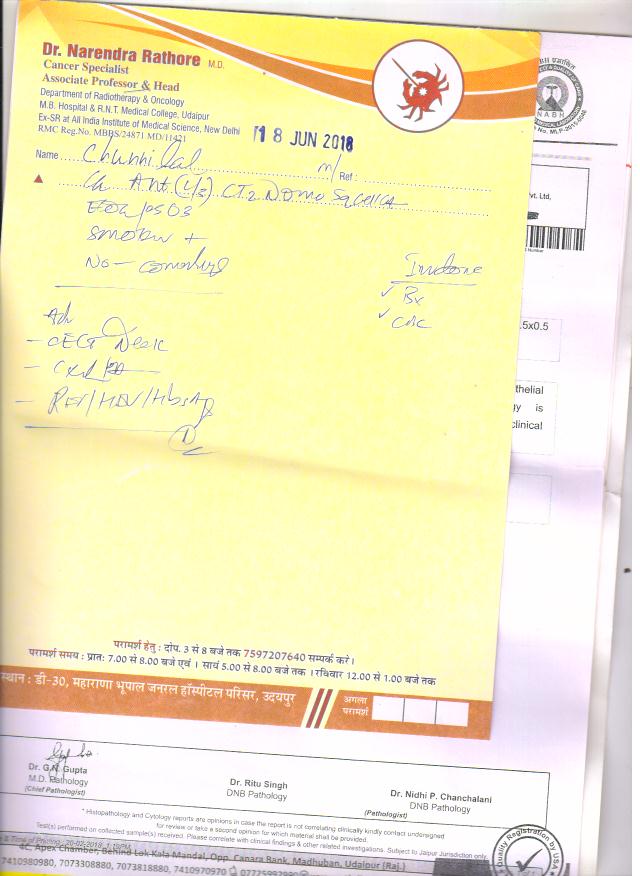 Dr. Narendra Rathore M.D.
Cancer Specialist
Associate Professor & Head
Department of Radiotherapy & Oncology
M.B. Hospital & R.N.T. Medical College, Udaipur
Ex-SR at All India Institute of Medical Science, New Delhi
RMC Reg.No. MBBS/24871 MD/11421
18 JUN 2018
Name Chunni Lal m/ Ref :
Ca Ant (1/3) CT2 N0M0 Sq cell Ca
Smoker +
No –
Invdone
✓ Bx
✓ CBC
Adv
– CECT Neck
–
– RFT/HIV/HbsAg
परामर्श हेतु : दोप. 3 से 8 बजे तक 7597207640 सम्पर्क करें।
परामर्श समय : प्रातः 7.00 से 8.00 बजे एवं । सायं 5.00 से 8.00 बजे तक । रविवार 12.00 से 1.00 बजे तक
स्थान : डी-30, महाराणा भूपाल जनरल हॉस्पीटल परिसर, उदयपुर
अगला
परामर्श
NABH
No. MLP-2015-0046
vt. Ltd,
Number
.5x0.5
thelial
gy is
clinical
Dr. G.N. Gupta
M.D. Pathology
(Chief Pathologist)
Dr. Ritu Singh
DNB Pathology
Dr. Nidhi P. Chanchalani
DNB Pathology
(Pathologist)
* Histopathology and Cytology reports are opinions in case the report is not correlating clinically kindly contact undersigned
for review or take a second opinion for which material shall be provided.
Test(s) performed on collected sample(s) received. Please correlate with clinical findings & other related investigations. Subject to Jaipur Jurisdiction only.
& Time of Printing : 20-02-2018, 1:19PM
4C, Apex Chamber, Behind Lok Kala Mandal, Opp. Canara Bank, Madhuban, Udaipur (Raj.)
7410980980, 7073308880, 7073818880, 7410970970
Quality Registration by US